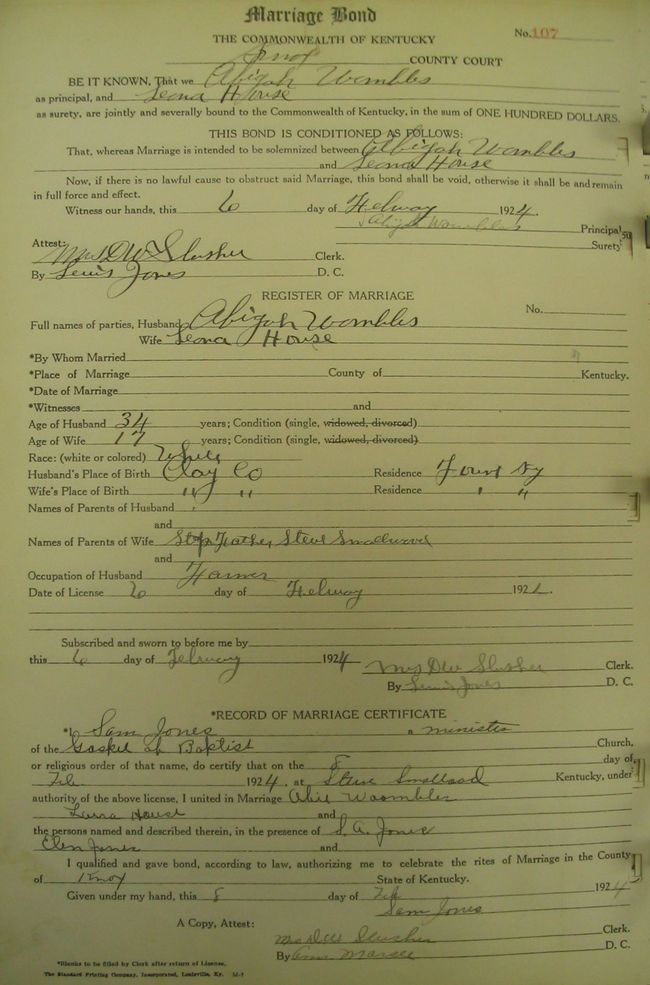 Marriage Bond
THE COMMONWEALTH OF KENTUCKY No. 107
Knox COUNTY COURT
BE IT KNOWN, That we Abigah Wombles
as principal, and Leona House
as surety, are jointly and severally bound to the Commonwealth of Kentucky, in the sum of ONE HUNDRED DOLLARS.
THIS BOND IS CONDITIONED AS FOLLOWS:
That, whereas Marriage is intended to be solemnized between Abigah Wombles
and Leona House
Now, if there is no lawful cause to obstruct said Marriage, this bond shall be void, otherwise it shall be and remain
in full force and effect.
Witness our hands, this 6 day of 1924.
Abigah Wombles Principal
Surety
Attest:
Mrs D W Slusher Clerk.
By Lewis Jones D. C.
REGISTER OF MARRIAGE
No.
Full names of parties, Husband Abigah Wombles
Wife Leona House
*By Whom Married
*Place of Marriage County of Kentucky.
*Date of Marriage
*Witnesses and
Age of Husband 34 years; Condition (single, widowed, divorced)
Age of Wife 17 years; Condition (single, widowed, divorced)
Race: (white or colored) White
Husband's Place of Birth Clay Co Residence Ky
Wife's Place of Birth " " Residence " "
Names of Parents of Husband
and
Names of Parents of Wife Step Father Steve Smallwood
and
Occupation of Husband Farmer
Date of License 6 day of 192
Subscribed and sworn to before me by
this 6 day of February 1924 Mrs D W Slusher Clerk.
By Lewis Jones D. C.
*RECORD OF MARRIAGE CERTIFICATE
*I, Sam Jones a minister
of the Baptist Church,
or religious order of that name, do certify that on the 8 day of
Feb 1924, at Steve Kentucky, under
authority of the above license, I united in Marriage Abie Woombles
House and
the persons named and described therein, in the presence of S. A. Jones
Jones and
I qualified and gave bond, according to law, authorizing me to celebrate the rites of Marriage in the County
of Knox State of Kentucky.
Given under my hand, this 8 day of Feb 1924
Sam Jones
A Copy, Attest:
Mrs D W Slusher Clerk.
By D. C.
*Blanks to be filled by Clerk after return of License.
The Standard Printing Company, Incorporated, Louisville, Ky.